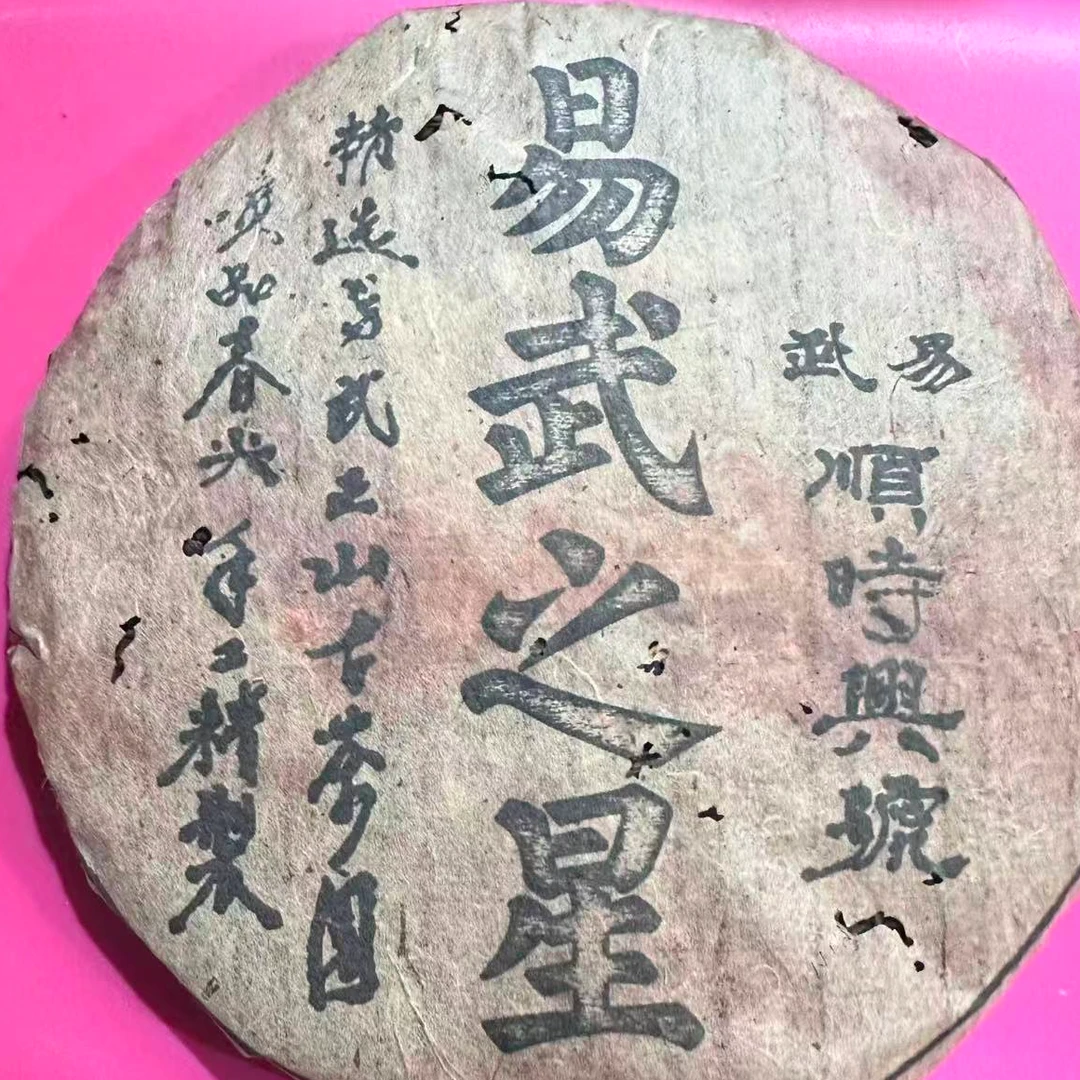 易武
順時興號
易武之星
精选易武正山古茶园
品春尖手工精製